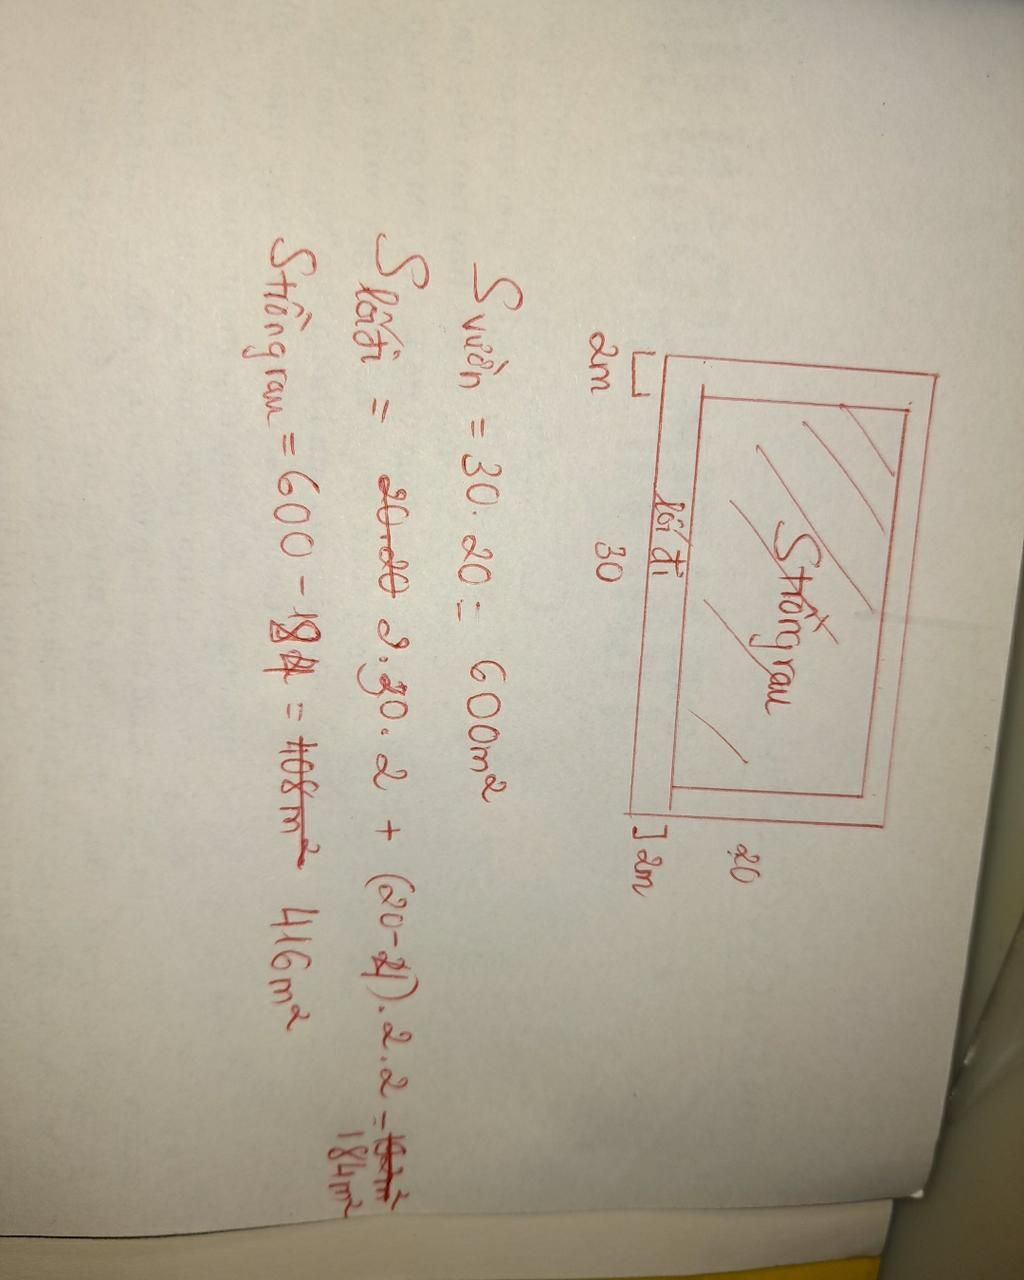 S trồng rau
lối đi
20
2m
30
2m
S vườn = 30.20 = 600m²
S lối đi = 2.30.2 + (20-4).2.2 = 184m²
S trồng rau = 600 - 184 = 408m² 416m²